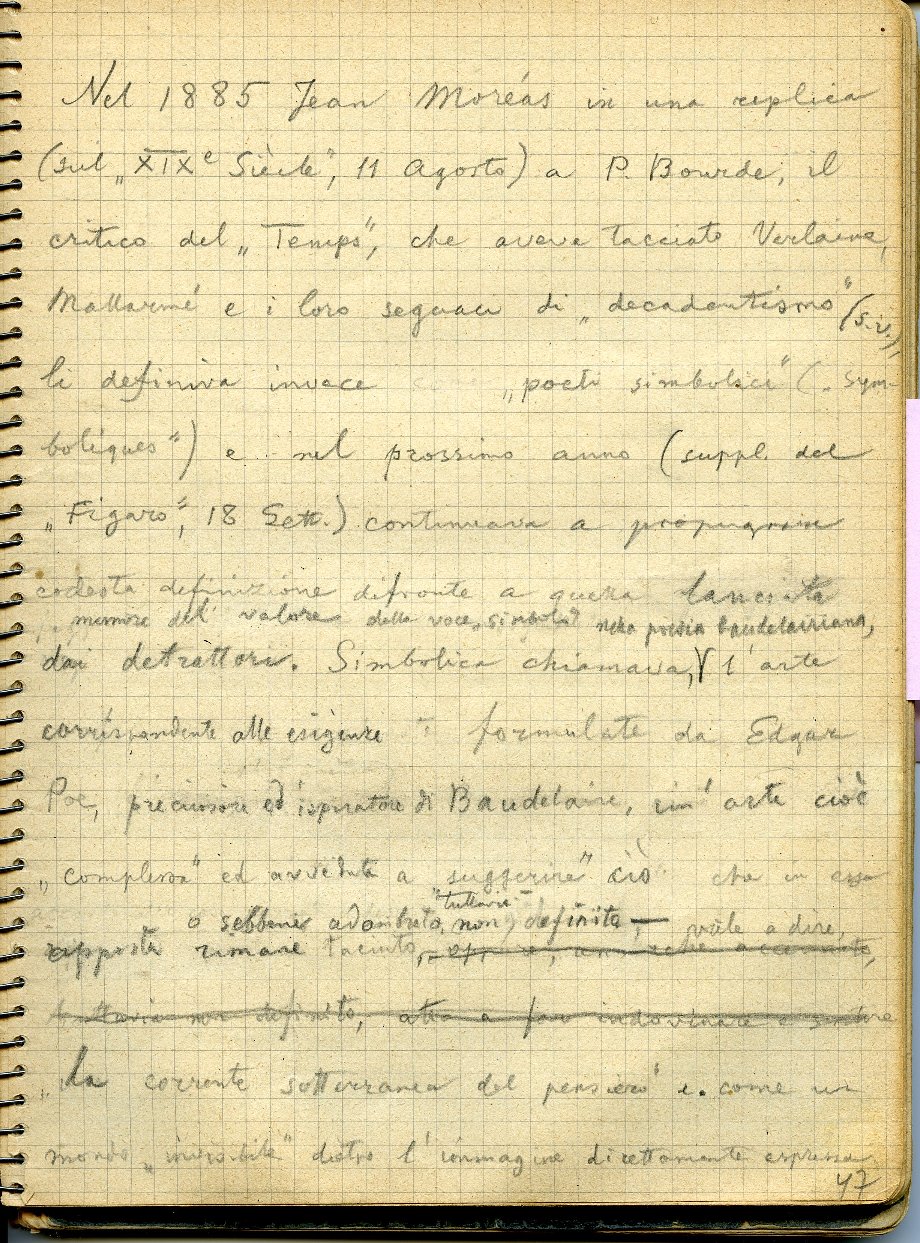 Nel 1885 Jean Moréas in una replica
(sul „XIXe Siècle", 11 Agosto) a P. Bourde, il
critico del „Temps", che aveva tacciato Verlaine,
Mallarmé e i loro seguaci di „decadentismo" (s.v.),
li definiva invece „poeti simbolici" („Sym-
boliques") e nel prossimo anno (suppl. del
„Figaro", 18 Sett.) continuava a propugnare
codesta definizione difronte a quella lanciata
memore del valore della voce „simbolo" nella poesia baudelairiana,
dai detrattori. Simbolica chiamava, l'arte
corrispondente alle esigenze formulate da Edgar
Poe, precursore ed ispiratore di Baudelaire, un'arte cioè
„complessa" ed avveduta a „suggerire" ciò che in essa
"tuttavia"
o sebbene adombrato, non definito, — vale a dire,
apposta rimane taciuto, accennato,
tuttavia non definito, atta a far indovinare e sentire
„la corrente sotterranea del pensiero" e come un
mondo „invisibile" dietro l'immagine direttamente espressa
47